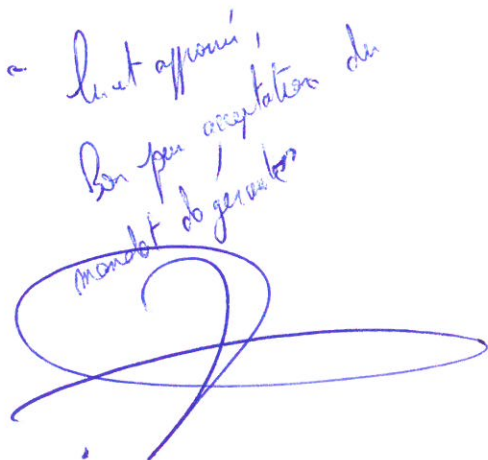 Lu et approuvé,
Bon pour acceptation du
mandat de gérante